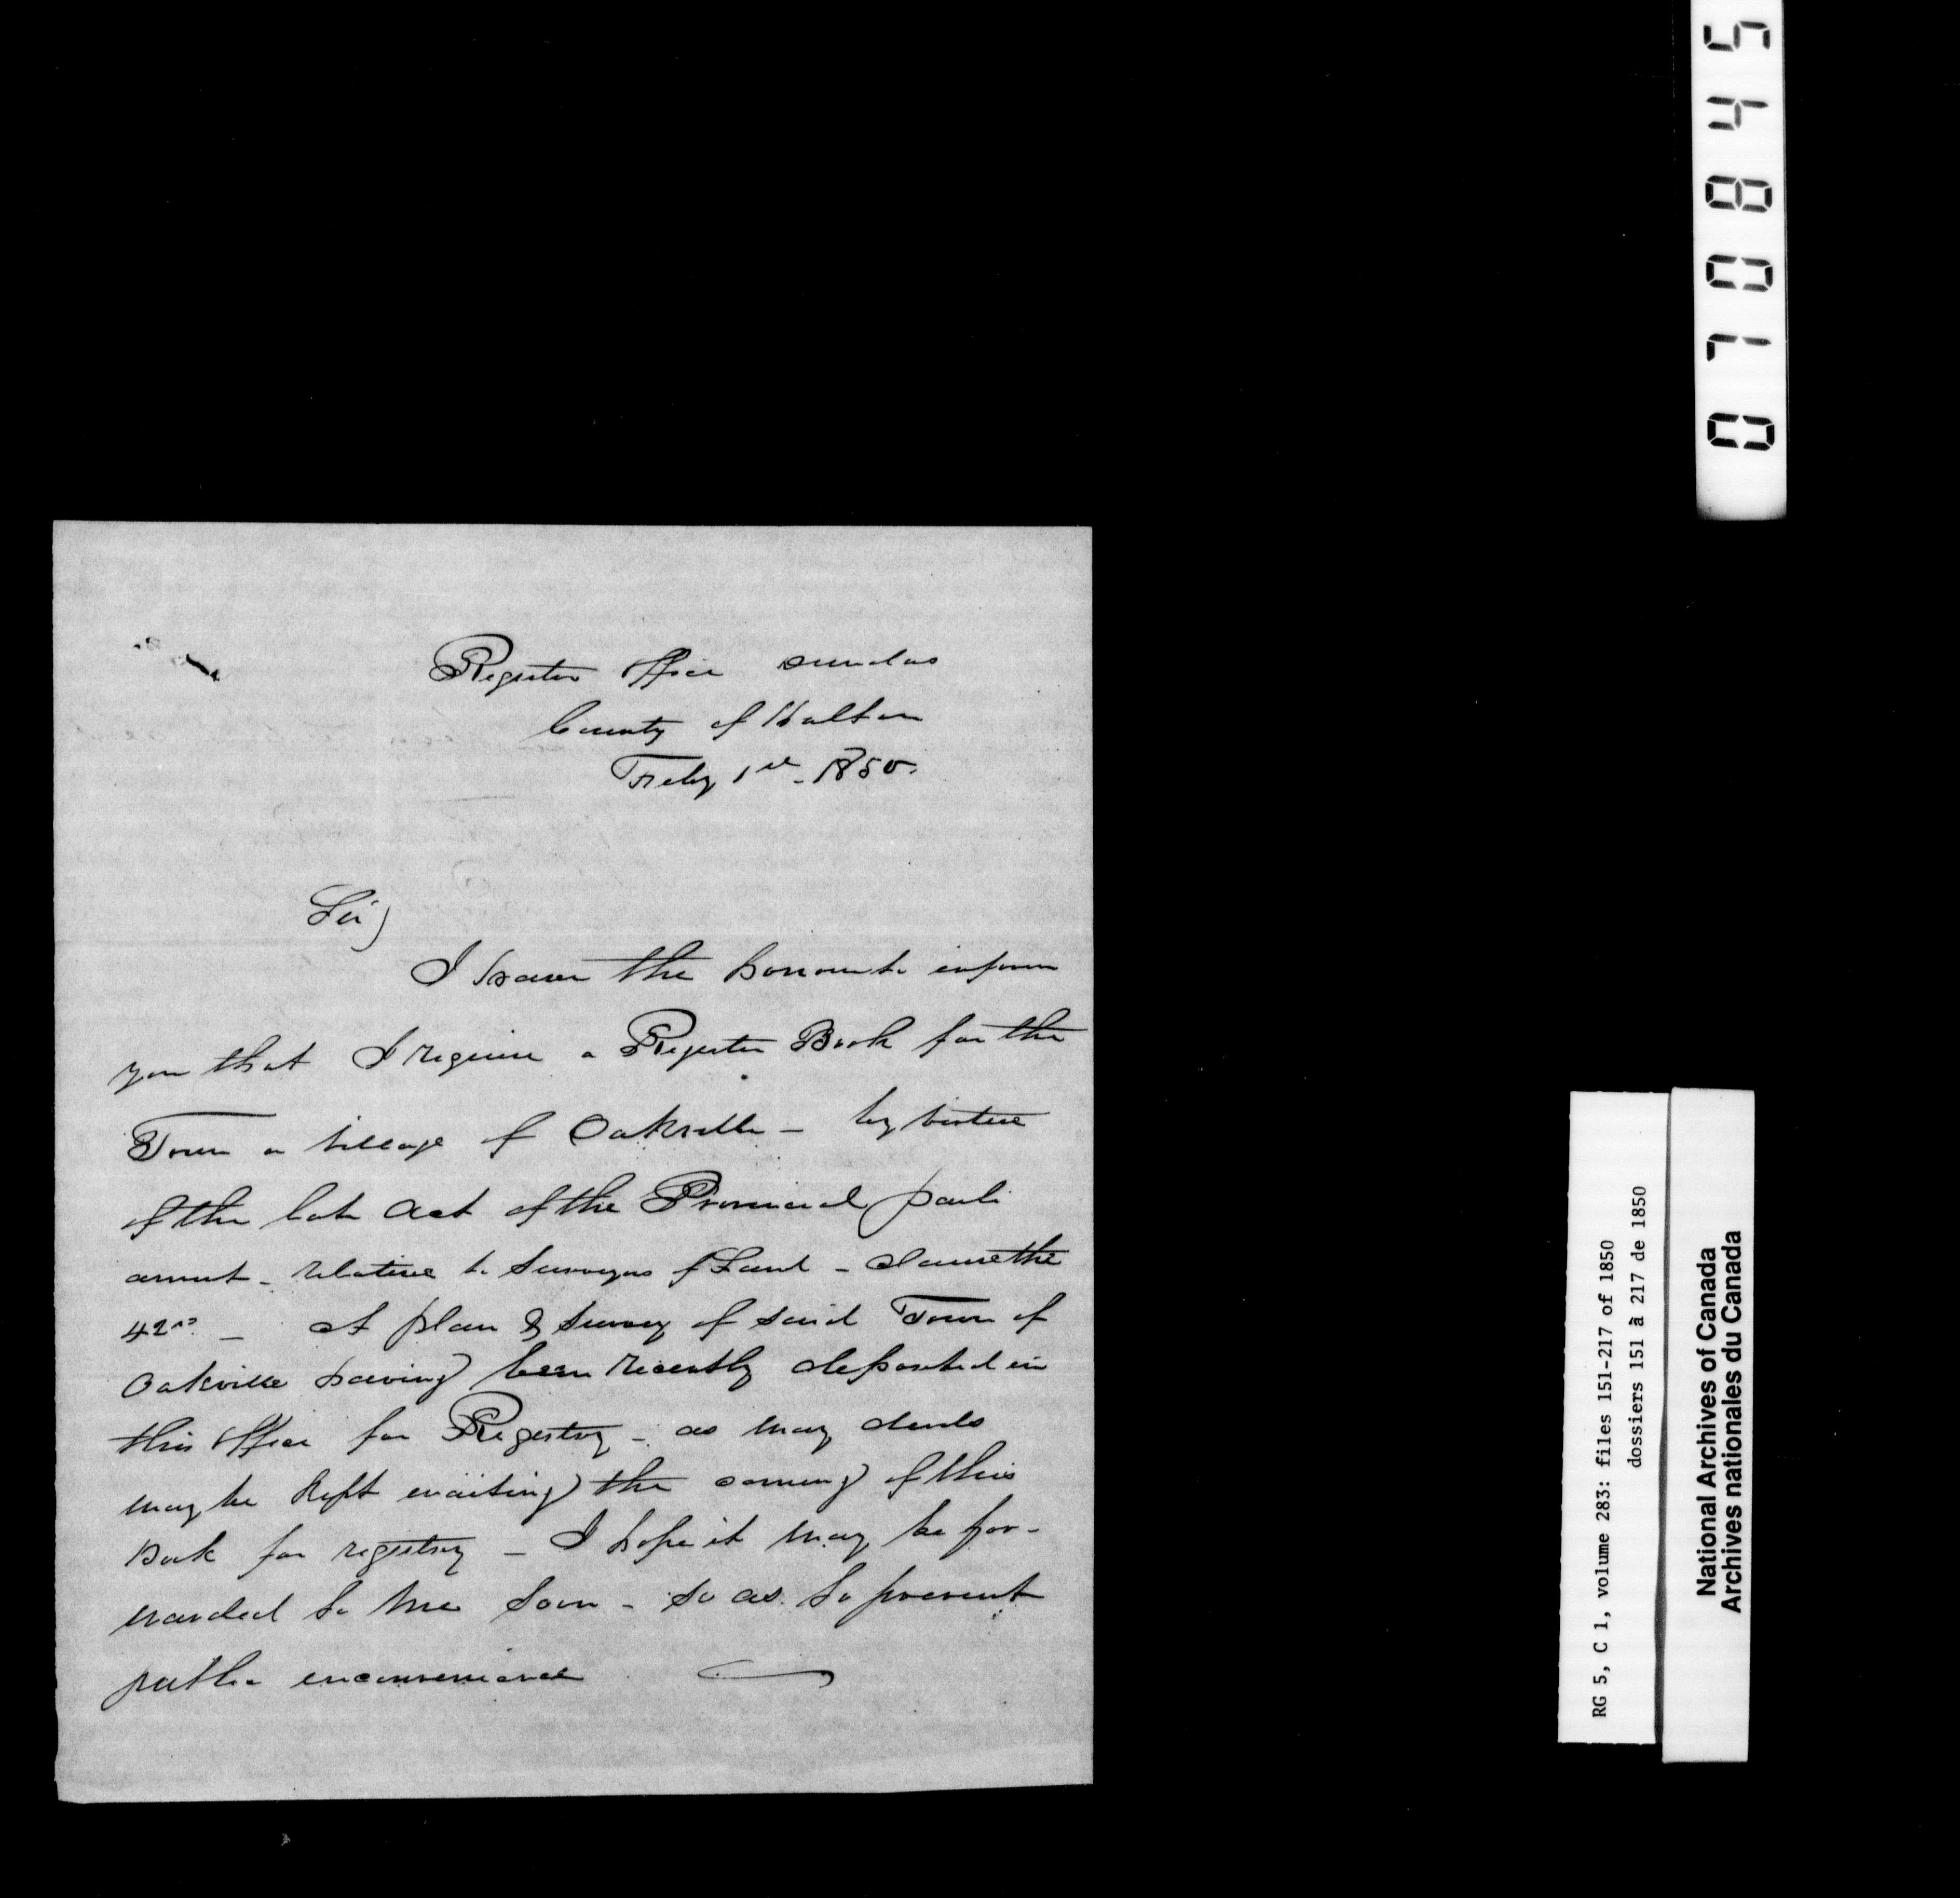 Register office Dundas
County of Halton
Feby 1st - 1850.
Sir,
I have the honour to inform
you that I require a Register Book for the
Town or Village of Oakville - by virtue
of the late Act of the Provincial parli
ament - relative to Surveyors of Land - Clause the
42nd - A plan & Survey of said Town of
Oakville having been recently deposited in
this office for Registry - as many deeds
may be kept waiting the coming of this
Book for registry - I hope it may be for-
warded to me soon - so as to prevent
public inconvenience
070845
RG 5, C 1, volume 283: files 151-217 of 1850
dossiers 151 à 217 de 1850
National Archives of Canada
Archives nationales du Canada